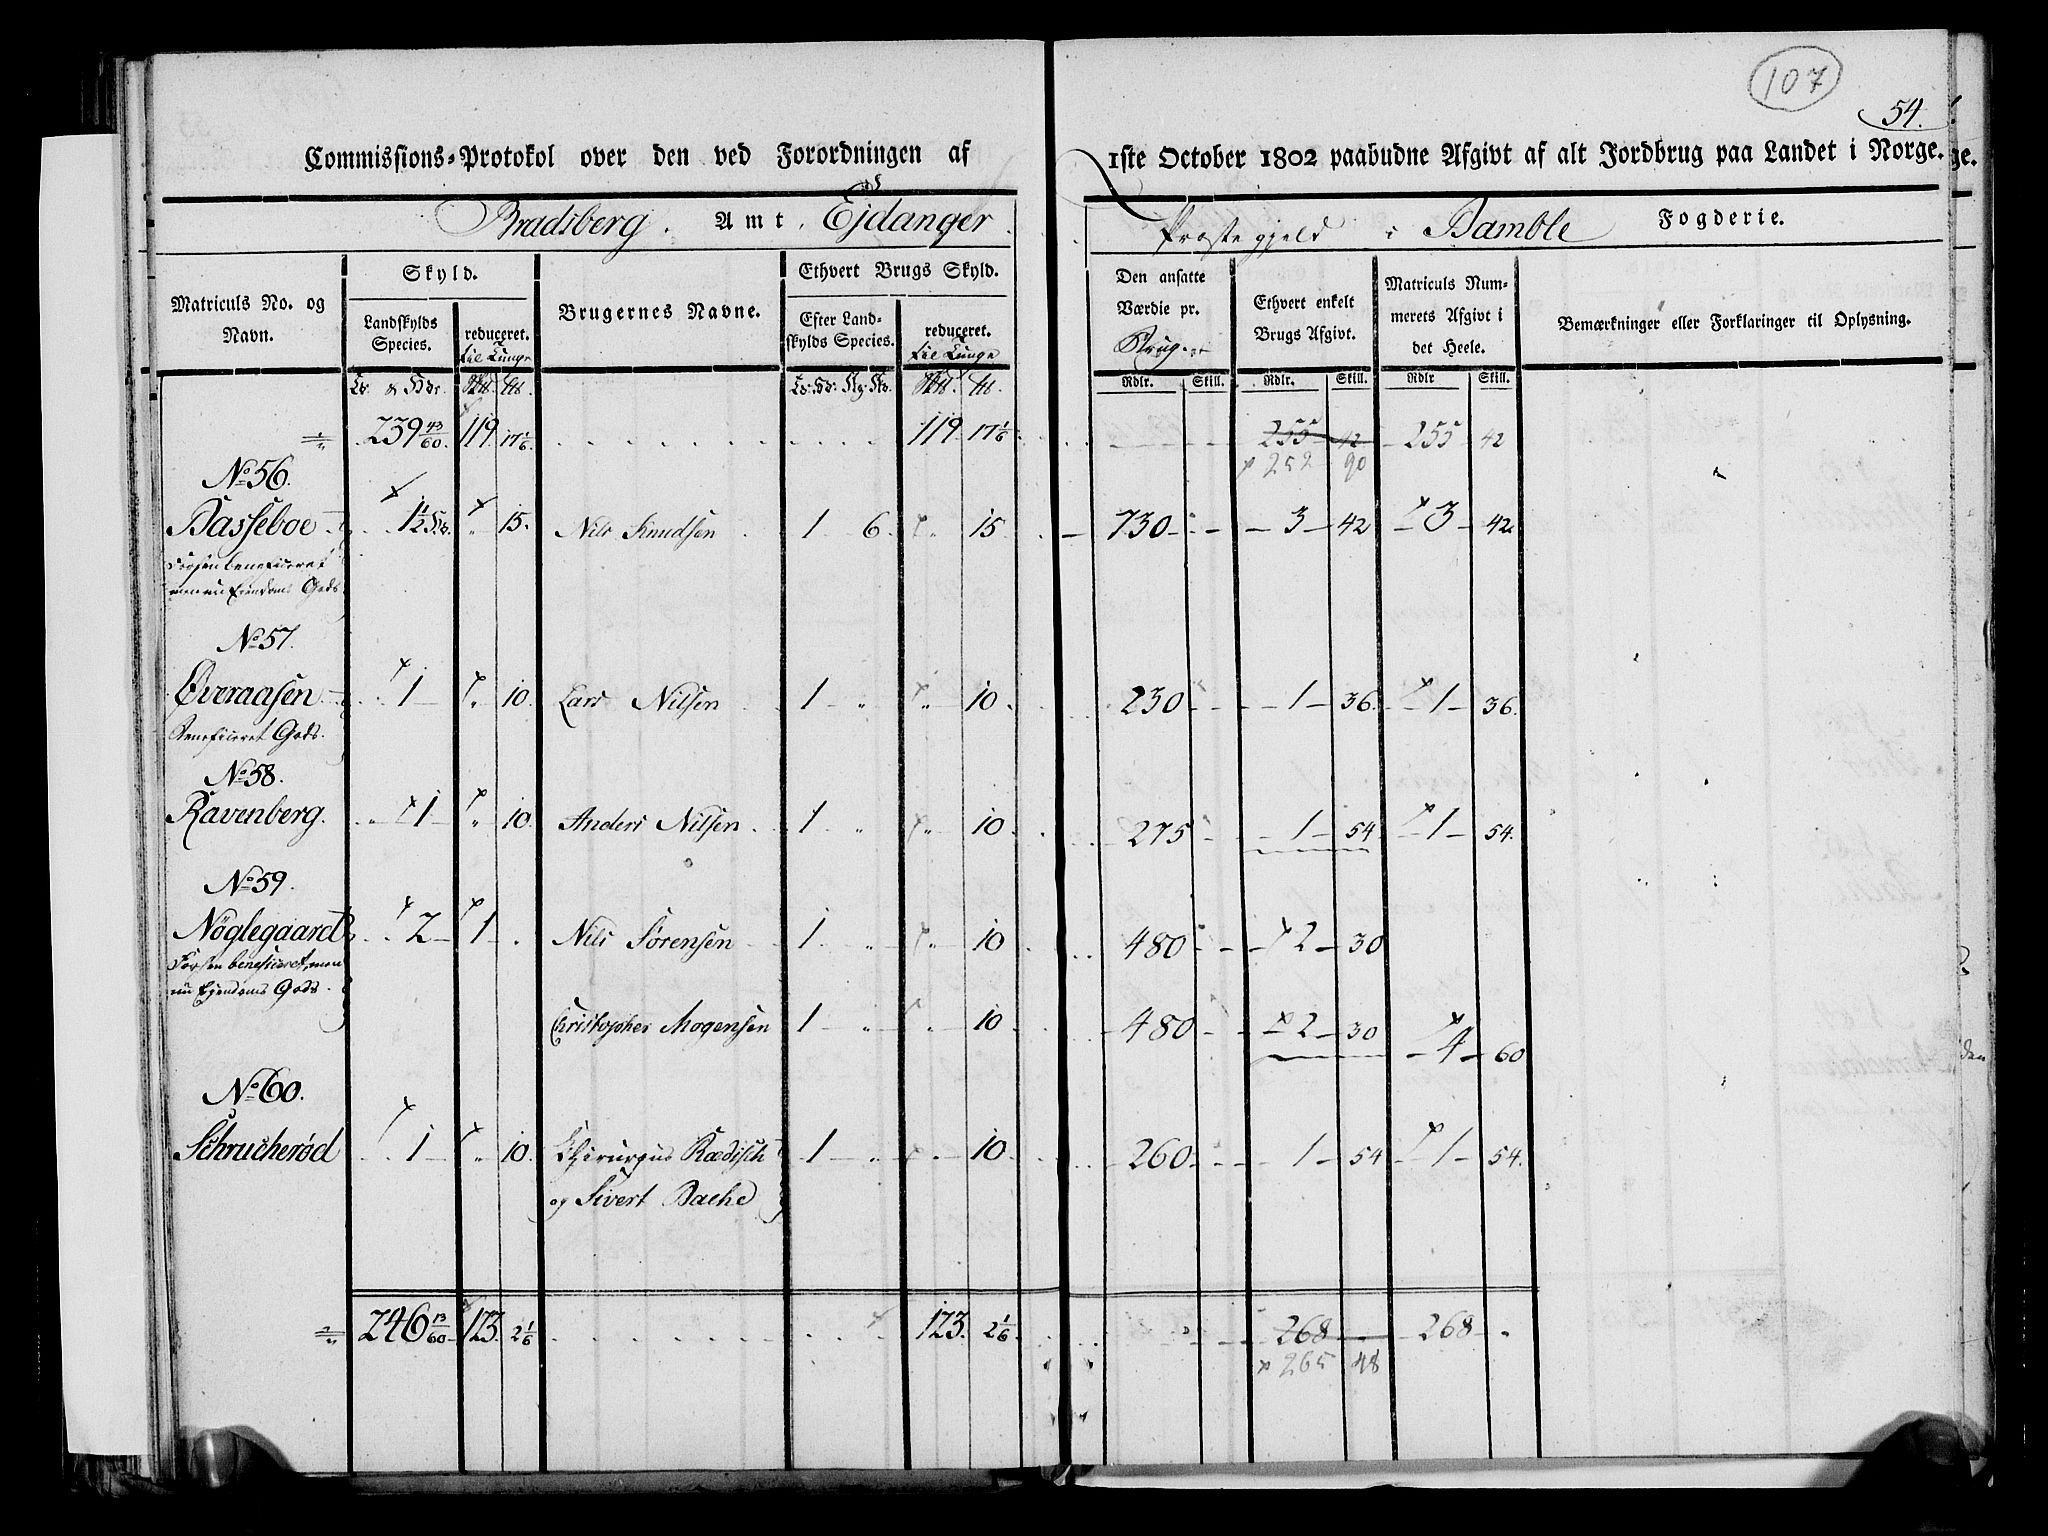 107
54.
Commissions-Protokol over den ved Forordningen af 1ste October 1802 paabudne Afgivt af alt Jordbrug paa Landet i Norge.
Bradsberg. Amt. Ejdanger Præstegjeld i Bamble Fogderie.
Matriculs No. og Navn.
Skyld.
Landskylds Species.
reduceret. til Tunge
Brugernes Navne.
Ethvert Brugs Skyld.
Efter Landskylds Species.
reduceret. til Tunge
Den ansatte Værdie pr. Brug
Ethvert enkelt Brugs Afgivt.
Matriculs Nummerets Afgivt i det Heele.
Bemærkninger eller Forklaringer til Oplysning.
Rdlr. Skill. Rdlr. Skill. Rdlr Skill.
239 43/60 119 17 1/6 119 17 1/6 255 42 255 42
252 90
No 56.
Basseboe 1 1/2 15. Nils Knudsen 1 6 15 730 3 42 3 42
Forhen beneficeret
men nu Eiendoms Gods
No 57.
Øveraasen 1 10 Lars Nilsen 1 10 230 1 36 1 36.
Beneficeret Gods.
No 58.
Ravenberg. 1 10. Anders Nilsen 1 10 275 1 54 1 54.
No 59.
Nöglegaard 2 1 Nils Sørensen 1 10 480 2 30
Forhen beneficeret, men
nu Ejendoms Gods.
Christopher Mogensen 1 10 480 2 30 4 60
No 60.
Schrucherød 1 10. Chirurgus Rædisch 1 10 260 1 54 1 54.
og Sivert Bache
246 13/60 123. 2 1/6 123. 2 1/6 268 268
265 48